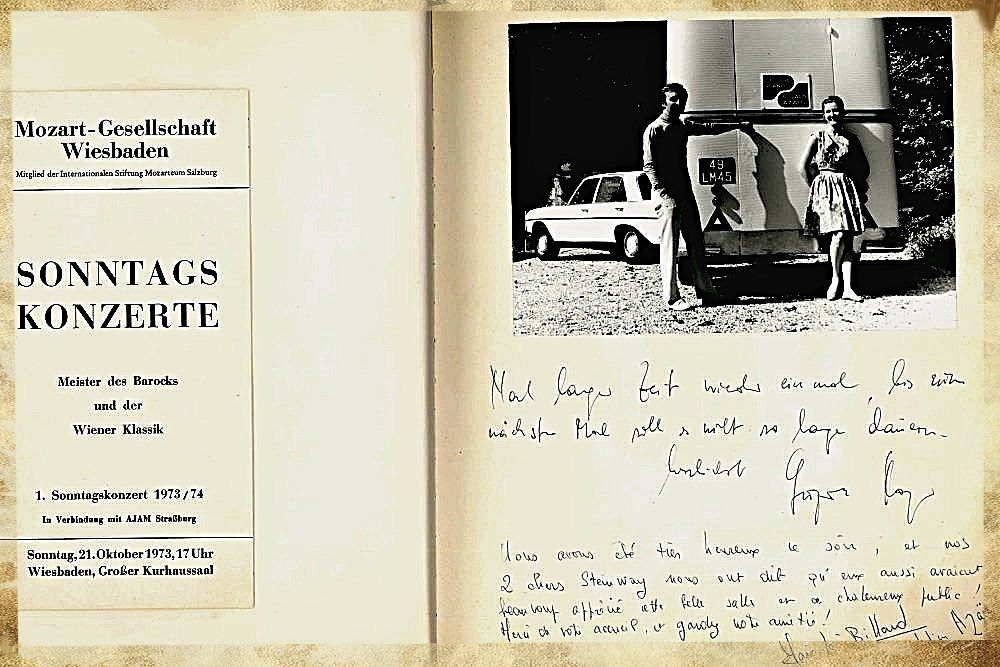 Mozart-Gesellschaft
Wiesbaden
Mitglied der Internationalen Stiftung Mozarteum Salzburg
SONNTAGS
KONZERTE
Meister des Barocks
und der
Wiener Klassik
1. Sonntagskonzert 1973/74
In Verbindung mit AJAM Straßburg
Sonntag, 21. Oktober 1973, 17 Uhr
Wiesbaden, Großer Kurhaussaal
49
LM45
Nach langer Zeit wieder ein mal, bis zum
nächsten Mal soll es nicht so lange dauern.
Herzlichst
Nous avons été très heureux ce soir, et nos
2 chers Steinway nous ont dit qu'eux aussi avaient
beaucoup apprécié cette belle salle et ce chaleureux public!
Merci de votre accueil, et gardez votre amitié!
Billard